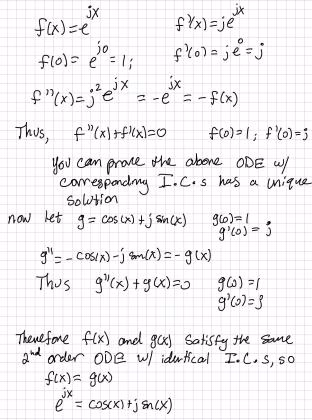 f(x) = e^{jx}    f'(x) = je^{jx}
f(0) = e^{j0} = 1;    f'(0) = je^0 = j
f''(x) = j^2 e^{jx} = -e^{jx} = -f(x)
Thus, f''(x)+f'(x)=0    f(0)=1; f'(0)=j
You can prove the above ODE w/
corresponding I.C.s has a unique
solution
now let g = cos(x)+j sin(x)    g(0)=1
g'(0) = j
g'' = -cos(x)-j sin(x) = -g(x)
Thus g''(x) + g(x) = 0    g(0) = 1
g'(0) = j
Therefore f(x) and g(x) satisfy the same
2nd order ODE w/ identical I.C.s, so
f(x) = g(x)
e^{jx} = cos(x)+j sin(x)